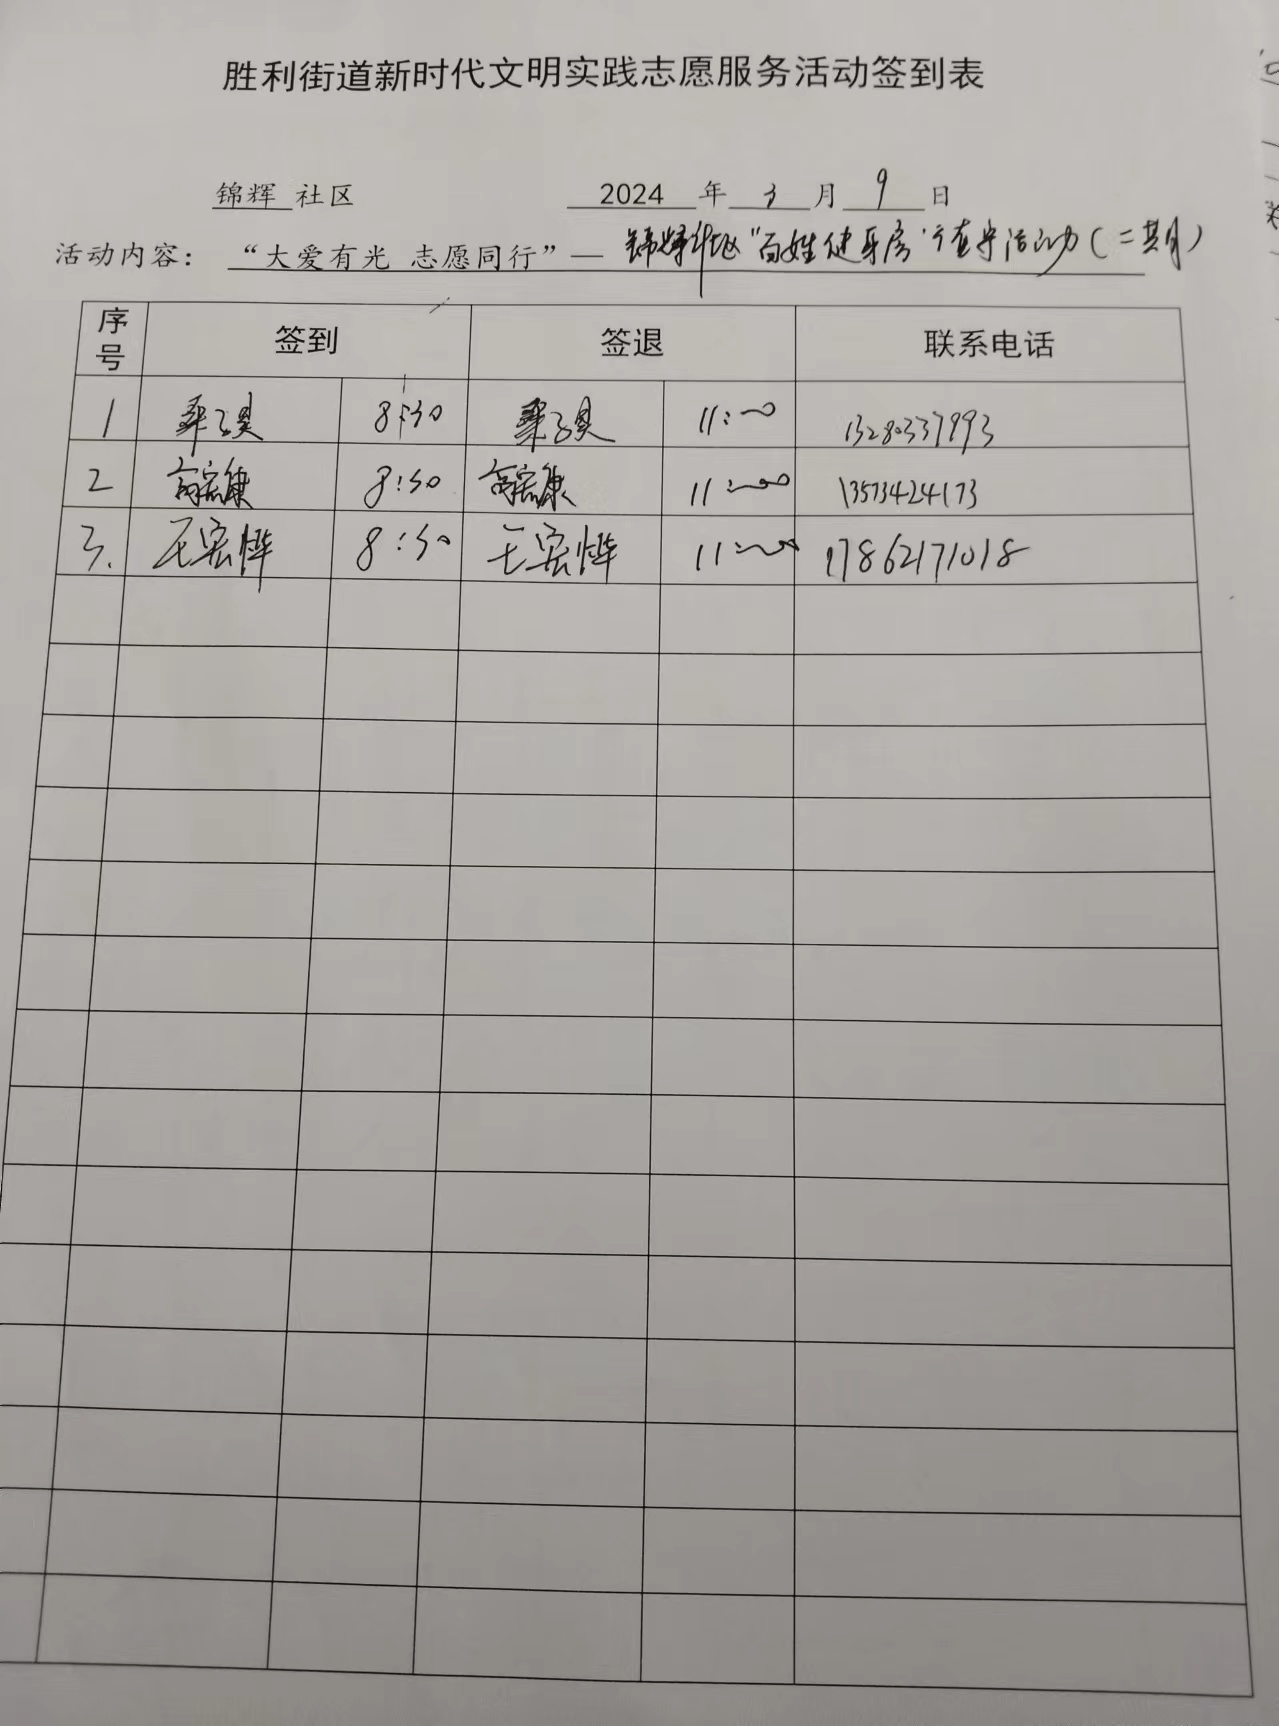 胜利街道新时代文明实践志愿服务活动签到表
锦辉 社区 2024 年 3 月 9 日
活动内容： “大爱有光 志愿同行”— 锦辉社区“百姓健身房”值守活动（二其月）
序号 签到 签退 联系电话
1 8:30 11:00 13280337993
2 高宏康 8:30 高宏康 11:00 13573424173
3. 王宏烨 8:30 王宏烨 11:00 17862171018